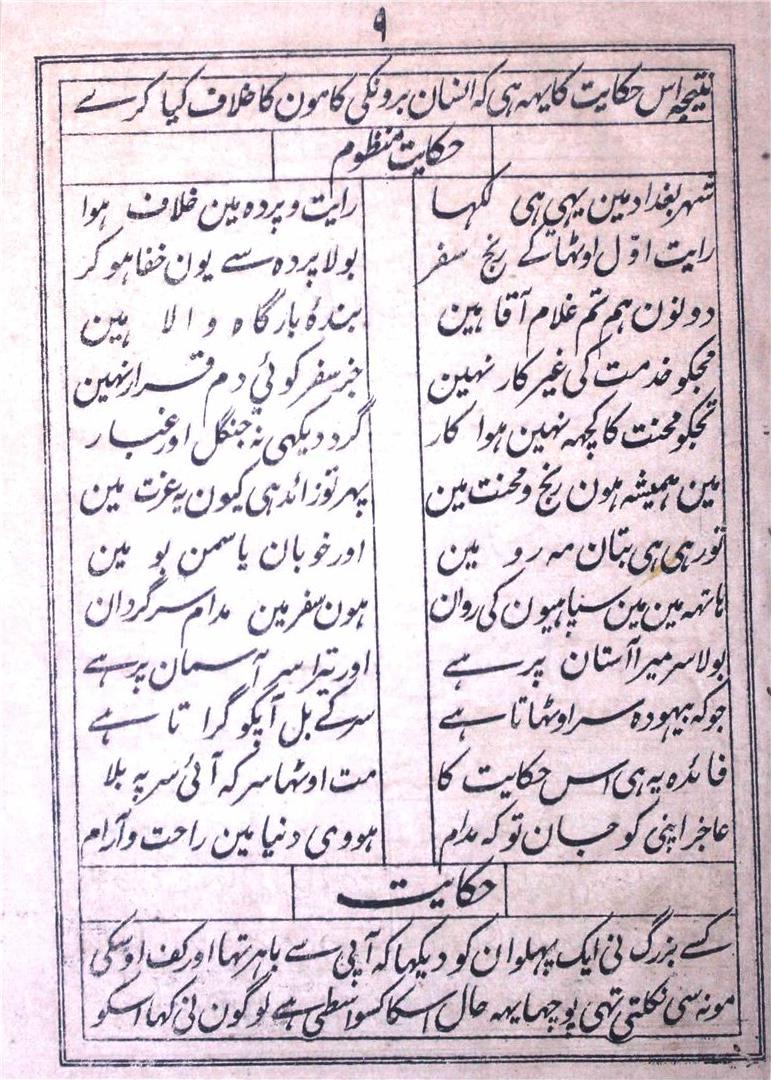 ۹
نتیجہ اس حکایت کا یہہ ہی کہ انسان برونکی کامون کا خلاف کیا کرے
حکایت منظوم
شہر بغداد مین یہی ہی لکہا رایت و پردہ مین خلاف ہوا
رایت اوّل اوٹہا کے رنج سفر بولا پردہ سے یون خفا ہو کر
دونون ہم تم غلام آقا ہین بندۂ بارگاہ والا ہین
مجکو خدمت کی غیر کار نہین جز سفر کوئی دم قرار نہین
تجکو محنت کا کچہہ نہین ہوا کار گرد دیکہی نہ جنگل اور غبار
مین ہمیشہ ہون رنج و محنت مین پہر تو زائد ہی کیون یہ عزت مین
تو رہی ہی بتان مہ رو مین اور خوبان یاسمن بو مین
ہاتہہ مین مین سپاہیون کی روان ہون سفر مین مدام سرگردان
بولا سر میرا آستان پر ہے اور تیرا سر آسمان پر ہے
جو کہ بیہودہ سر اوٹہاتا ہے سر کے بل آپکو گراتا ہے
فائدہ یہ ہی اس حکایت کا مت اوٹہا سر کہ آئی سر پہ بلا
عاجز اپنی کو جان تو کہ مدام ہووی دنیا مین راحت و آرام
حکایت
کسے بزرگ نی ایک پہلوان کو دیکہا کہ آپی سے باہر تہا اور کف اوسکی
مونہ سی نکلتی تہی پوچہا یہہ حال اسکا کسواسطی ہے لوگون نی کہا اسکو